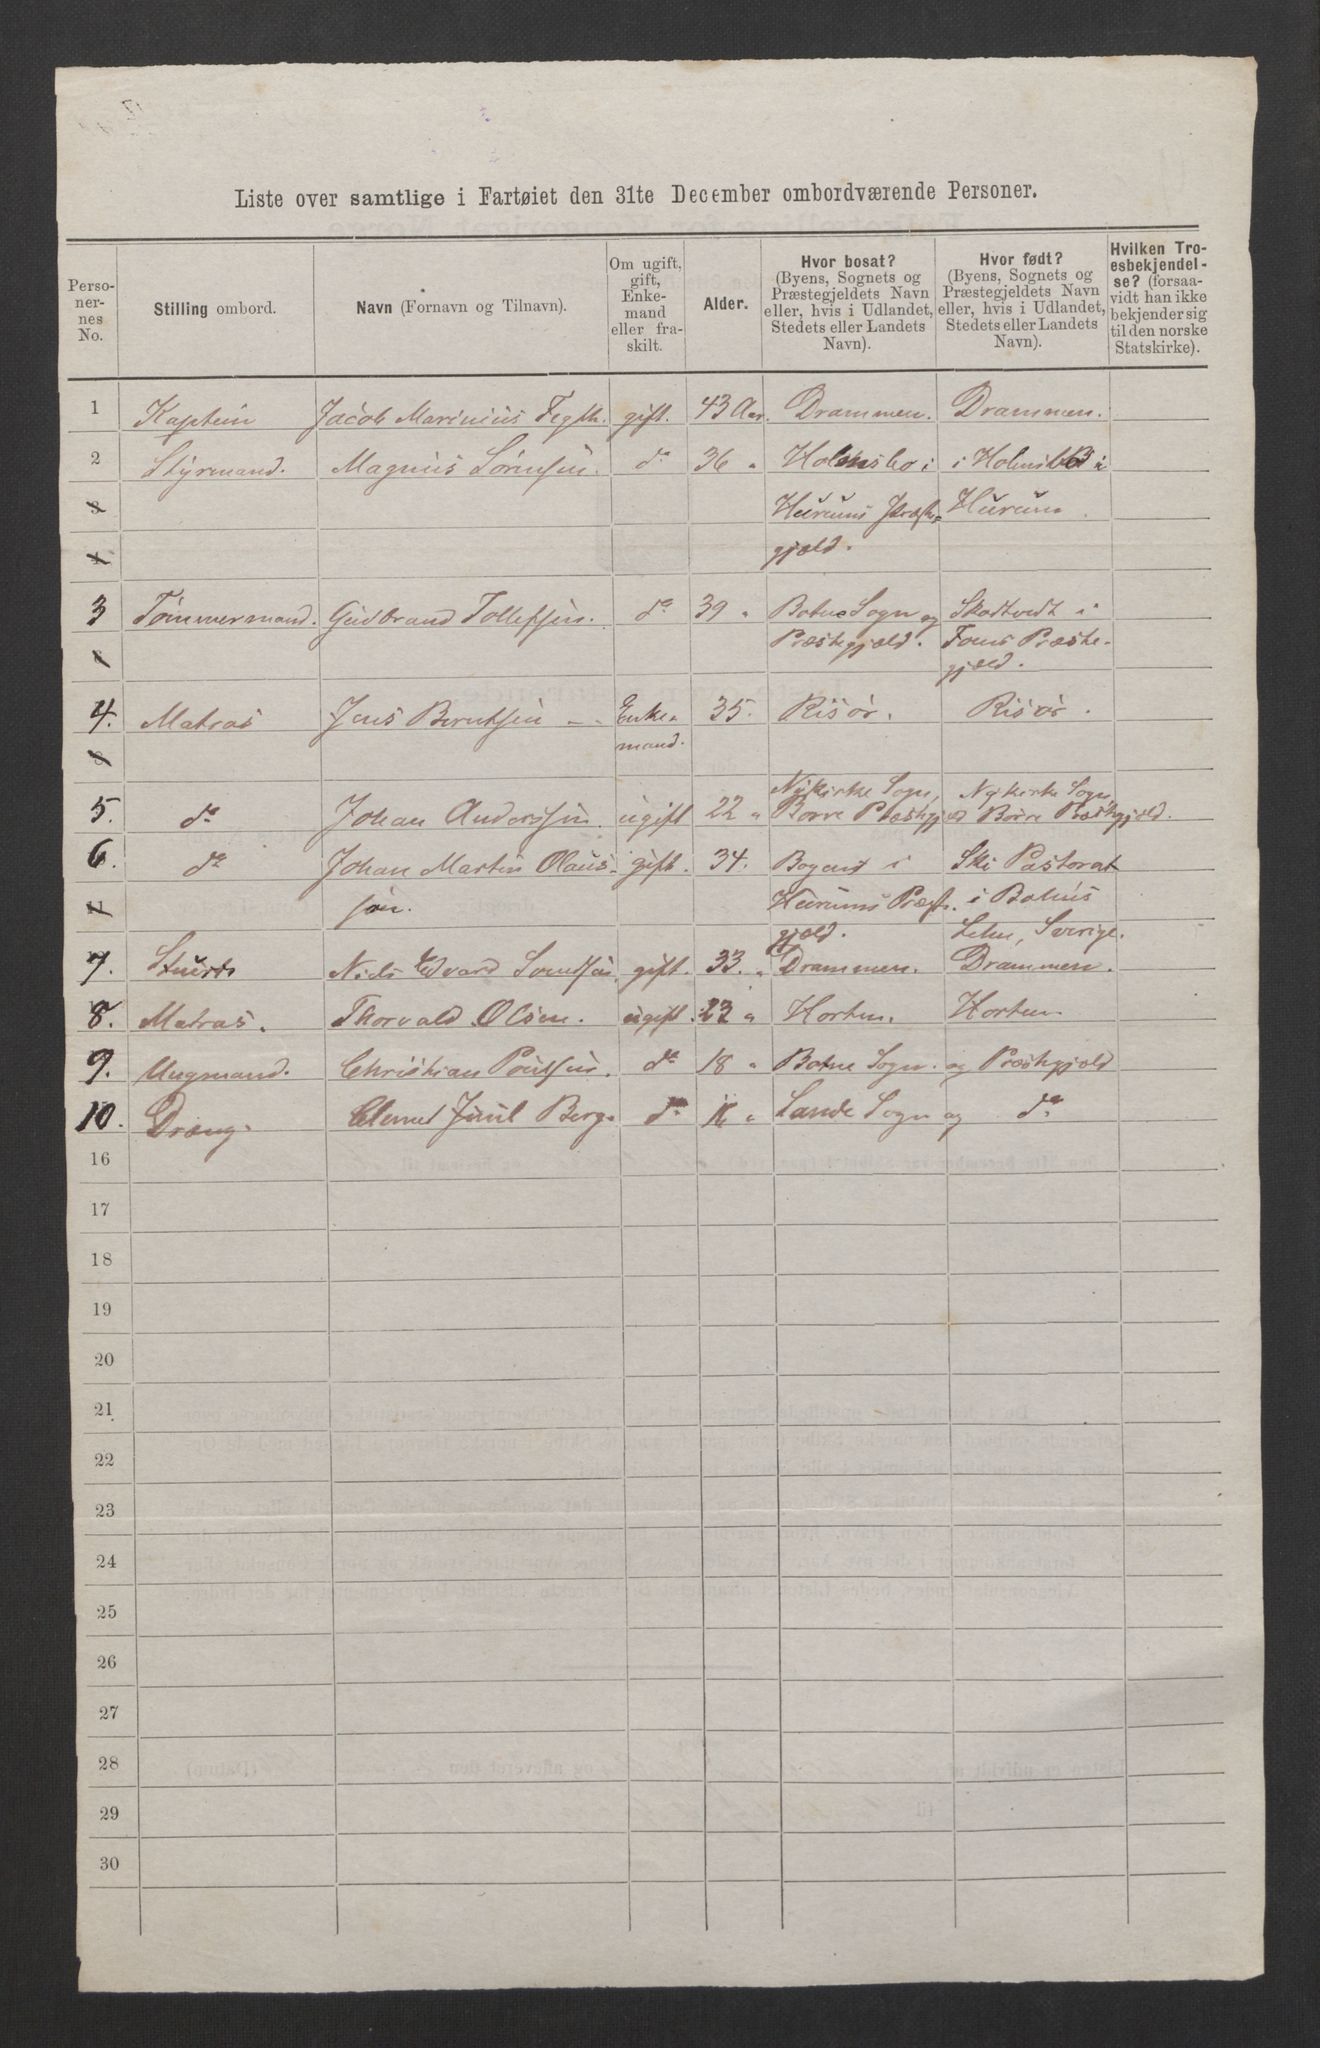 Liste over samtlige i Fartøiet den 31te December ombordværende Personer.
Perso-
ner-
nes
No.
Stilling ombord.
Navn (Fornavn og Tilnavn).
Om ugift,
gift,
Enke-
mand
eller fra-
skilt.
Alder.
Hvor bosat?
(Byens, Sognets og
Præstegjeldets Navn
eller, hvis i Udlandet,
Stedets eller Landets
Navn).
Hvor født?
(Byens, Sognets og
Præstegjeldets Navn
eller, hvis i Udlandet,
Stedets eller Landets
Navn).
Hvilken Tro-
esbekjendel-
se? (forsaa-
vidt han ikke
bekjender sig
til den norske
Statskirke).
1 Kaptein Jacob Marinius gift. 43 Aar. Drammen. Drammen.
2 Styrmand. Magnus Sörensen. do 36 " Holmsbo i i Holmsbo i
3 Hurums Præste- Hurum.
4 gjæld.
3 Tömmermand. Gudbrand Tollefsen. do 39 " Botne Sogn og Skadtvedt i
Præstegjæld. Præste-
gjæld.
4. Matros Jens Berntsen Enke- 35. Risör. Risör.
8 mand.
Nykirke Sogn, Nykirke Sogn
5. do Johan Anderssen. ugift 22 " Borre Præstgjæld Borre Præstgjæld.
6. do Johan Martin Olaus- gift. 34. i Ski Pastorat
11 sen. Hurums Præst. i Bahus
gjæld. Lehn, Sverige.
7. Stuert Niels Edvard Svendsen gift. 33. " Drammen. Drammen.
8. Matros. Thorvald Olsen. ugift. 23 " Horten. Horten.
9. Ungmand. Christian do 18 " Botne Sogn. og Præstgjæld
10. Dræng. Juul Berg. do 16 " Sande Sogn og do
16
17
18
19
20
21
22
23
24
25
26
27
28
29
30